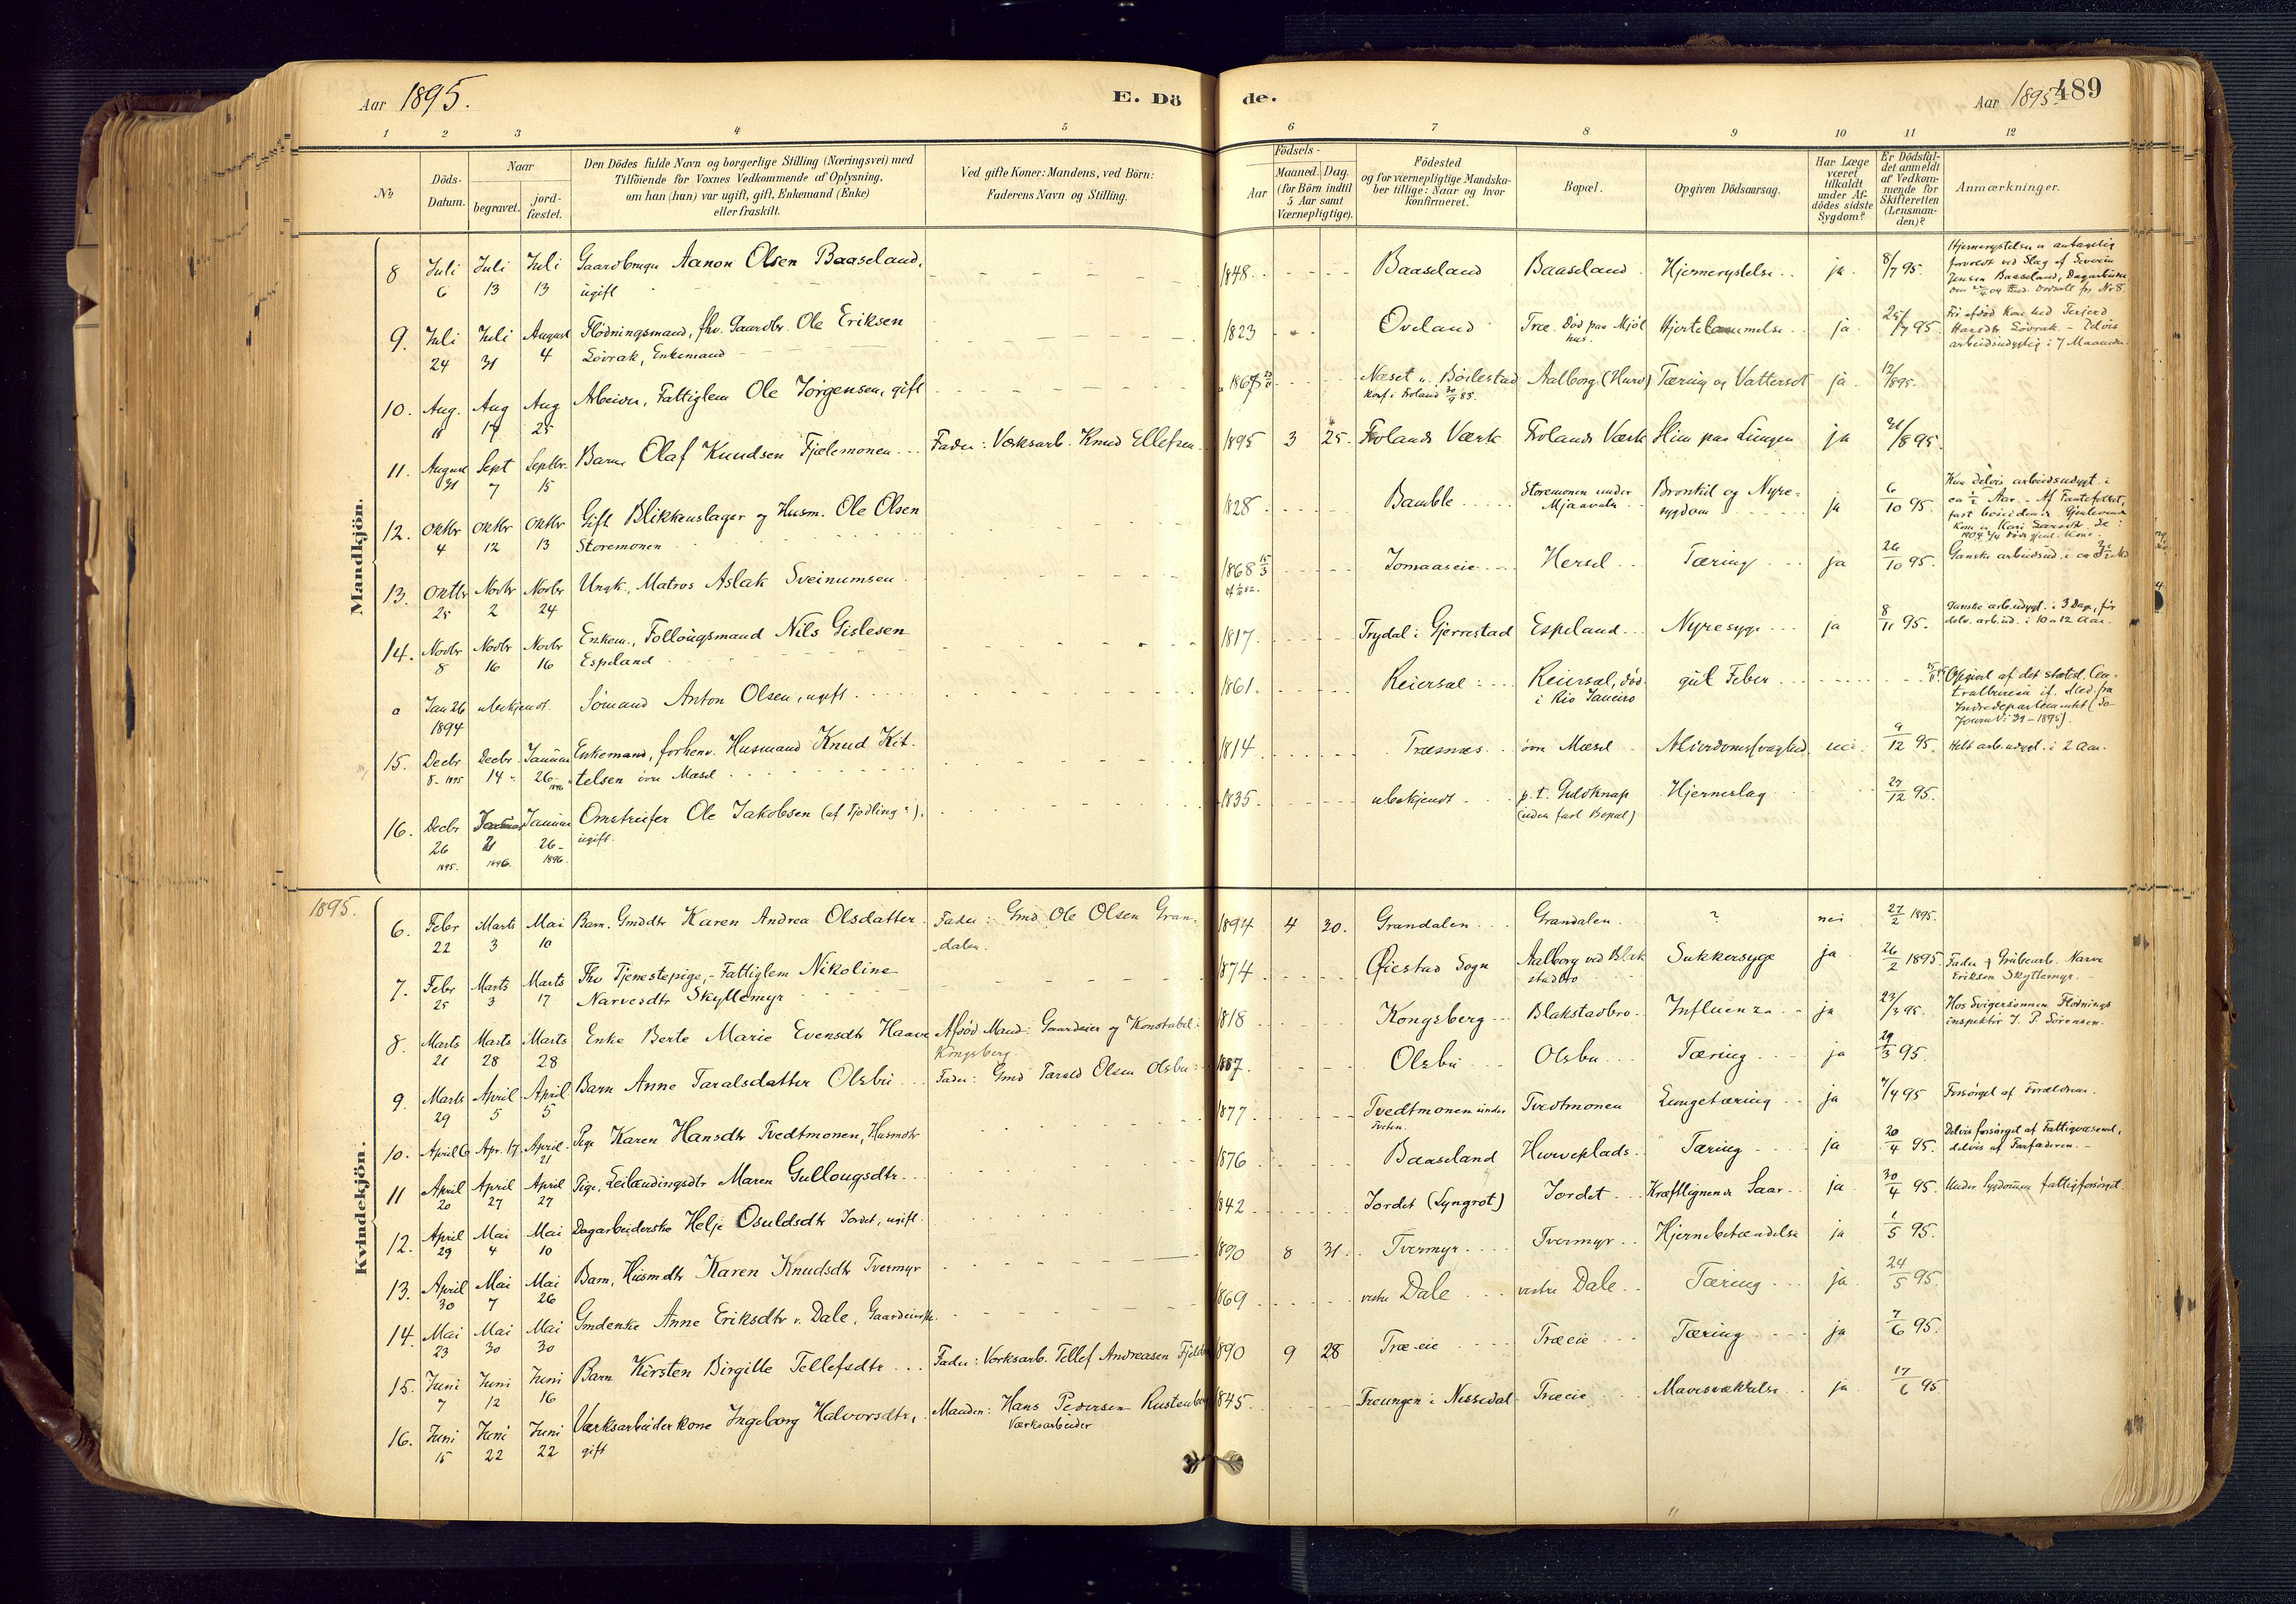 Aar 1895.
E. Dö
de.
Aar 1895.
489
1 2 3 4 5 6 7 8 9 10 11 12
No
Döds-
Datum.
Naar
begravet.
jord-
fæstet.
Den Dödes fulde Navn og borgerlige Stilling (Næringsvei) med
Tilföiende for Voxnes Vedkommende af Oplysning,
om han (hun) var ugift, gift, Enkemand (Enke)
eller fraskilt.
Ved gifte Koner: Mandens, ved Börn:
Faderens Navn og Stilling.
Födsels-
Aar
Maaned. Dag.
(for Börn indtil
5 Aar samt
Værnepligtige).
Födested
og for værnepligtige Mandska-
ber tillige: Naar og hvor
konfirmeret.
Bopæl.
Opgiven Dödsaarsag.
Har Læge
været
tilkaldt
under Af-
dödes sidste
Sygdom?
Er Dödsfal-
det anmeldt
af Vedkom-
mende for
Skifteretten
(Lensman-
den)?
Anmærkninger.
Mandkjön.
8 Juli 6 Juli 13 Juli 13 Gaardbruger Aanon Olsen Baaseland, 1848. Baaseland Baaseland. Hjernerystelse.. ja. 8/7 95. Hjernerystelsen antagelig
ugift forvoldt ved Slag af Severin
Jensen Baaseland, Dagarbeider
9. Juli 24 Juli 31 August 4 Flödningsmand, fhv. Gaardbr. Ole Eriksen 1823 Oveland Træ. Död paa Mjöl Hjertelammelse.. ja. 25/7 95.
Lövrak, Enkemand hus. Hansdtr Lövrak. - Delvis
arbeidsudygtig i 7 Maaneder.
10. Aug. 18 Aug 17 Aug 25 Arbeider, Fattiglem Ole Jörgensen, gift 1867 Næset u. Böilestad Aalborg (Hurv) Tæring og Vattersot ja. 12/8 95.
Konf i Froland 30/9 83.
11. August 31 Sept 7 Septbr. 15 Barn Olaf Knudsen Fjelemonen... Fader: Værksarb. Knud Ellefsen. 1895 3 25. Frolands Værk Frolands Værk Slim paa Lungen ja 31/8 95.
12. Oktbr 4 Oktbr 12 Oktbr 13 Gift Blikkenslager og Husm. Ole Olsen 1828 Bamble Storemonen under Bronkit og Nyre- ja 6/10 95. Kun delvis arbeidsudygt. i
Storemonen Mjaavatn sygdom ca 1/2 Aar. - Af Fantefolket,
fast boeiendes. Gjenlevende
13. Oktbr 25 Novbr 2 Novbr 24 Ungk., Matros Aslak Sveinumsen 1868 15/3 Jomaaseie Hersel Tæring ja 26/10 95. Ganske arbeidsud. i ca
14. Novbr 8 Novbr 16 Novbr 16 Enkem., Follougsmand Nils Gislesen 1817 Trydal i Gjerrestad Espeland... Nyresyge ja 8/11 95. Ganske arb.udygt. i 3 Dage, för
Espeland delv. arb.ud. i 10 a 12 Aar.
o Jan 26 1894 ubekjendt. Sömand Anton Olsen, ugift 1861. Reiersæl Reiersæl, död gul Feber Opgivet af det statist. Cen-
i Rio Janeiro tralbureau if. Med. fra
Indredepartementet
15. Decbr 8-1895 Decbr 14 Januar 26 1896 Enkemand, forhenv. Husmand Knud Kit- 1814 Træsnæs övre Mæsel Alderdomssvaghed nei. 9/12 95. Helt arb.udygt. i 2 Aar.
telsen övre Mæsel
16. Decbr 26 1895. 21 1896. Januar 26 1896. Omstreifer Ole Jakobsen (af Fjödling?). 1835. ubekjendt p.t. Guldknap Hjerneslag 27/12 95.
ugift. (uden fast Bopæl)
1895.
Kvindekjön.
6. Febr 22 Marts 3 Mai 10 Barn. Gmddtr Karen Andrea Olsdatter. Fader: Gmd Ole Olsen Gran- 1894 4 30. Grandalen Grandalen. ? nei 27/2 1895.
dalen.
7. Febr 25 Marts 3 Marts 17 Fhv Tjenestepige, - Fattiglem Nikoline 1874 Öiestad Sogn Aalborg ved Blak Sukkersyge ja. 26/2 1895. Fader † Grubearb. Narve
Narvesdtr Skyttemyr stadbro Eriksen Skyttemyr.
8. Marts 21 Marts 28 Marts 28 Enke Berte Marie Evensdtr Haave Afdöd Mand: Gaardeier og Konstabel: 1818 Kongsberg Blakstadbro. Influenza. ja 23/3 95. Hos Svigersönnen Flödnings
Kongsberg inspektör J. P. Sörensen.
9. Marts 29 April 5 April 5 Barn Anne Taralsdatter Olsbu Fader: Gmd Tarald Olsen Olsbu 1887. Olsbu Olsbu Tæring ja 29/3 95.
10. April 6 Apr. 17 April 21 Pige Karen Hansdtr Tvedtmonen, Husmdtr 1877 Tvedtmonen under Tvedtmonen Lungetæring ja 7/4 95 Forsörget af Forældrene.
Tveten.
11 April 20 April 27 April 27 Pige, Leilændingsdtr Maren Gullougsdtr 1876 Baaseland Hurveplads. Tæring ja 20/4 95. Delvis forsörget af Fattigvæsenet,
delvis af Farfaderen. -
12. April 29 Mai 4 Mai 10 Dagarbeiderske Helje Osuldsdtr Jordet, ugift. 1842 Jordet (Lyngrot) Jordet Kræftlignende Saar ja. 30/4 95. Under Sygdommen fattigforsörget.
13. April 30 Mai 7 Mai 26 Barn, Husmdtr Karen Knudsdtr Tvermyr 1890 8 31. Tvermyr Tvermyr Hjernebetændelse ja 1/5 95.
14. Mai 23 Mai 30 Mai 30 Gmdenke Anne Eriksdtr v. Dale, Gaardeierske. 1869 vestre Dale vestre Dale Tæring ja 24/5 95.
15. Juni 7 Juni 12 Juni 16 Barn Kirsten Birgitte Tellefsdtr Fader: Værksarb. Tellef Andreasen 1890 9 28 Træ-eie Træeie Tæring ja 7/6 95.
16. Juni 15 Juni 22 Juni 22 Værksarbeiderkone Ingeborg Halvorsdtr, Manden: Hans Pedersen Rustenborg 1845. Treungen i Nissedal Træeie Mavesvækkelse ja 17/6 95.
gift Værksarbeider